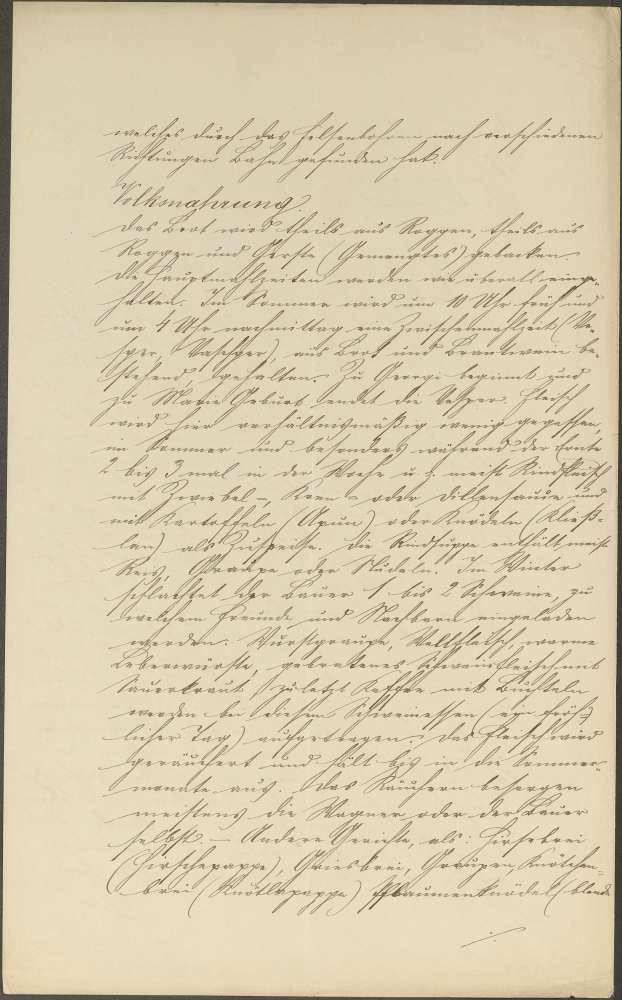 welches durch das Felsenbohren nach verschiedenen
Richtungen Bahn gefunden hat.
Volksnahrung.
Das Brot wird theils aus Roggen, theils aus
Roggen und Gerste (Gemengtes) gebacken.
Die Hauptmahlzeiten werden wie überall einge-
halten. Im Sommer wird um 10 Uhr früh und
um 4 Uhr nachmittag eine Zwischenmahlzeit (Ve-
sper, Vaschper), aus Brot und Brantwein be-
stehend, gehalten. Zu Georgi beginnt und
zu Marie Geburt endet die Vesper. Fleisch
wird hier verhältnismäßig wenig gegessen,
im Sommer und besonders während der Ernte
2 bis 3 mal in der Woche u. z. meist Rindfleisch
mit Zwiebel-, Kren- oder Dillensauce und
mit Kartoffeln (Apun) oder Knödeln (Kließ-
lan) als Zuspeise. Die Rindsuppe enthält meist
Reis, Graupe oder Nudeln. Im Winter
schlachtet der Bauer 1 bis 2 Schweine, zu
welchem Freunde und Nachbarn eingeladen
werden. Wurstgraupe, Wellfleisch, warme
Leberwürste, gebratenes Schweinfleisch mit
Sauerkraut, zuletzt Kaffee mit Buchteln
werden bei diesem Schweinessen (ein fröh-
licher Tag) aufgetragen. Das Fleisch wird
geräuchert und hält bis in die Sommer-
monate aus. Das Räuchern besorgen
meistens die Wagner oder der Bauer
selbst. – Andere Gerichte, als: Hirsebrei
(Hirschepappe), Griesbrei, Graupen, Knötchen-
brei (Knötlapappe) Pflaumenknödel